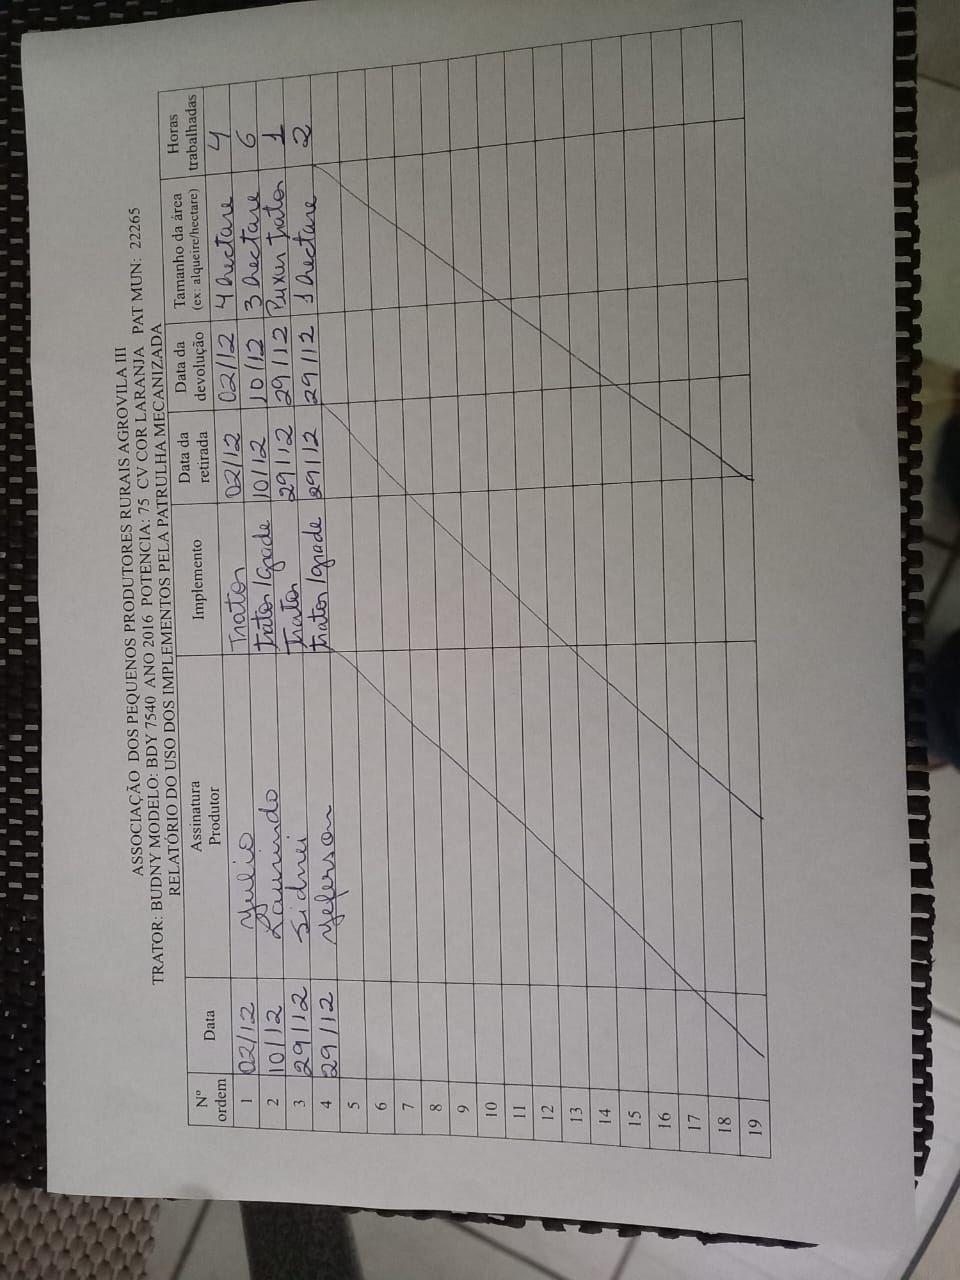 ASSOCIAÇÃO DOS PEQUENOS PRODUTORES RURAIS AGROVILA III
TRATOR: BUDNY MODELO: BDY 7540 ANO 2016 POTENCIA: 75 CV COR LARANJA PAT MUN: 22265
RELATÓRIO DO USO DOS IMPLEMENTOS PELA PATRULHA MECANIZADA
Nº ordem Data Assinatura Produtor Implemento Data da retirada Data da devolução Tamanho da área (ex: alqueire/hectare) Horas trabalhadas
1 02/12 Julio Trator 02/12 02/12 4 hectare 4
2 10/12 Laurindo trator/grade 10/12 10/12 3 hectare 6
3 29/12 Sidnei Trator 29/12 29/12 Puxur trator 1
4 29/12 Jeferson trator/grade 29/12 29/12 1 hectare 2
5
6
7
8
9
10
11
12
13
14
15
16
17
18
19